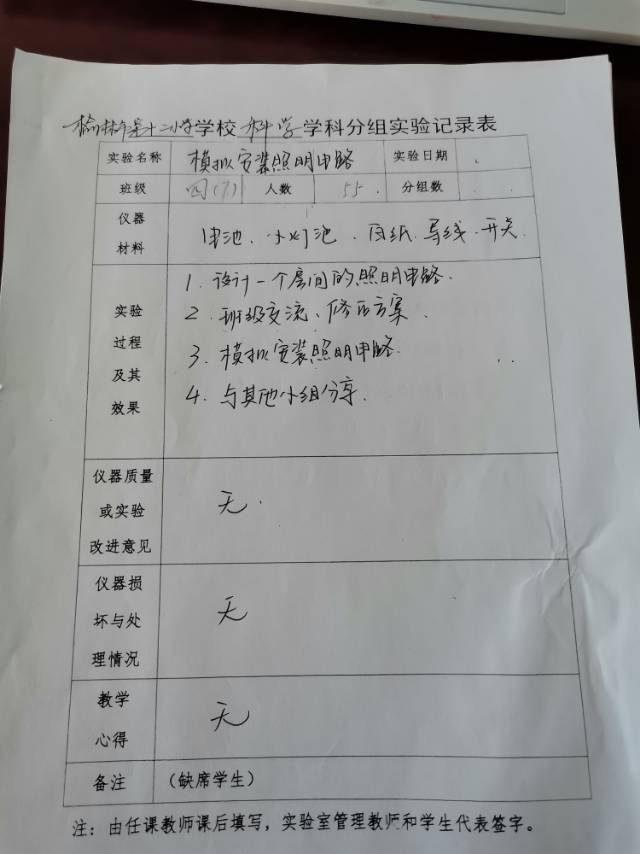 榆林市第十二小学学校 科学 学科分组实验记录表
实验名称 模拟安装照明电路 实验日期
班级 四(7) 人数 55 分组数
仪器
材料
电池、小灯泡、白纸、导线、开关
实验
过程
及其
效果
1. 设计一个房间的照明电路.
2. 班级交流、修正方案.
3. 模拟安装照明电路.
4. 与其他小组分享.
仪器质量
或实验
改进意见
无.
仪器损
坏与处
理情况
无
教学
心得
无
备注 (缺席学生)
注: 由任课教师课后填写, 实验室管理教师和学生代表签字。